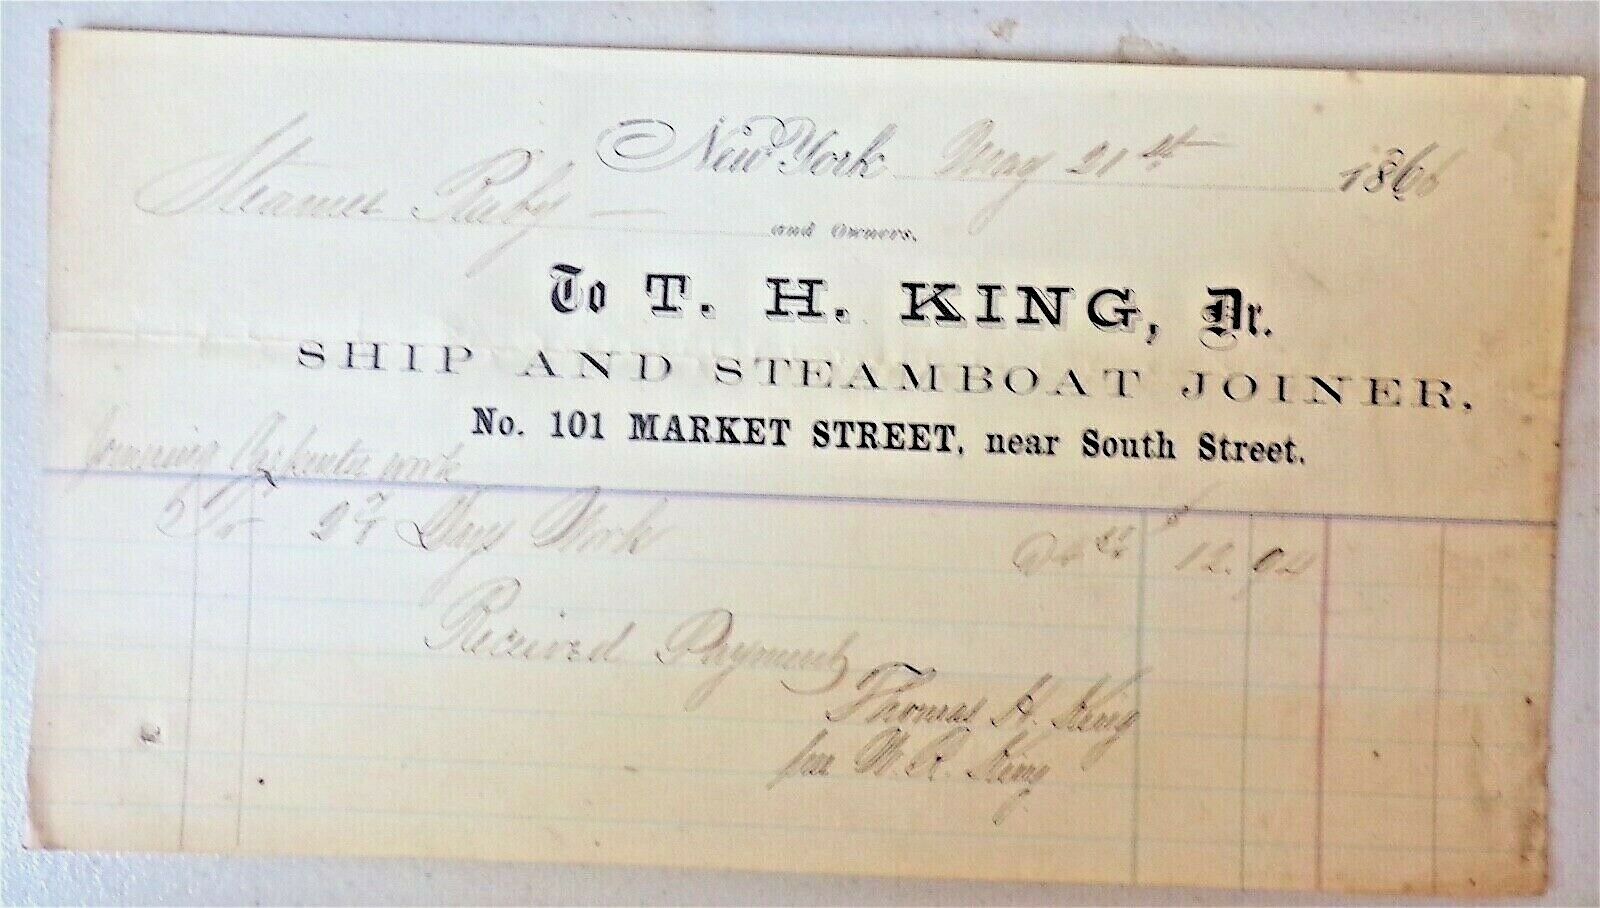 New York May 21st 1866
Steamer Ruby — and Owners,
To T. H. KING, Dr.
SHIP AND STEAMBOAT JOINER.
No. 101 MARKET STREET, near South Street.
work
Days Work 12.04
Received Payment
Thomas H. King
per W. R. King